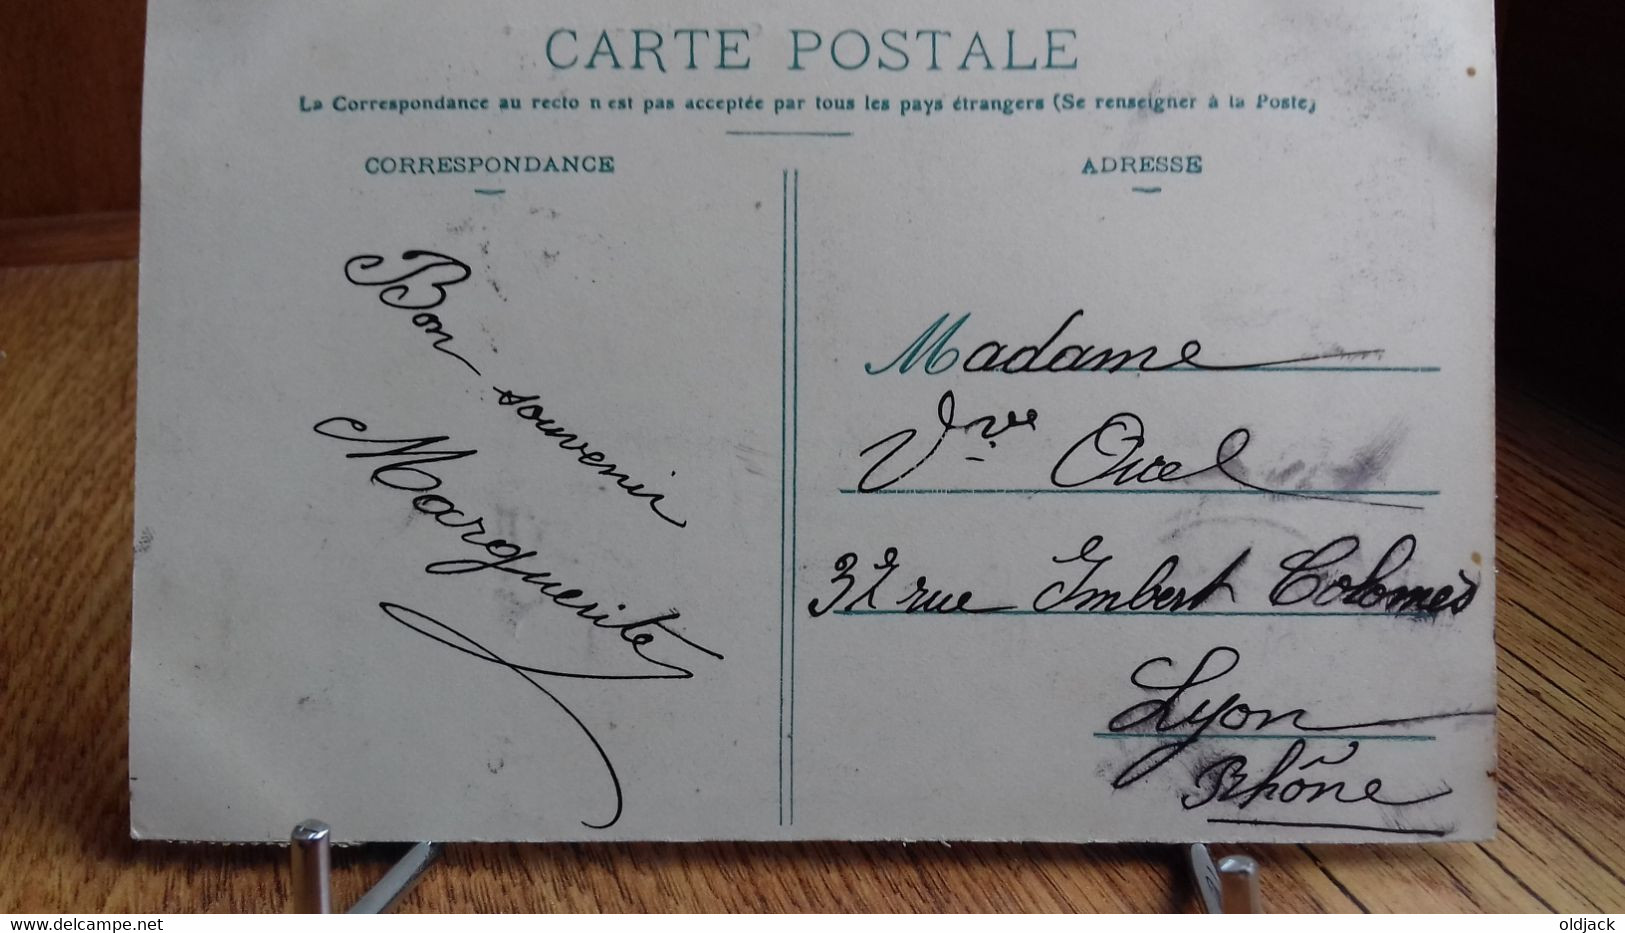 CARTE POSTALE
La Correspondance au recto n est pas acceptée par tous les pays étrangers (Se renseigner à la Poste)
CORRESPONDANCE
Bon souvenir
Marguerite
ADRESSE
Madame
Vve
rue Imbert Colomès
Lyon
Rhône
oldjack